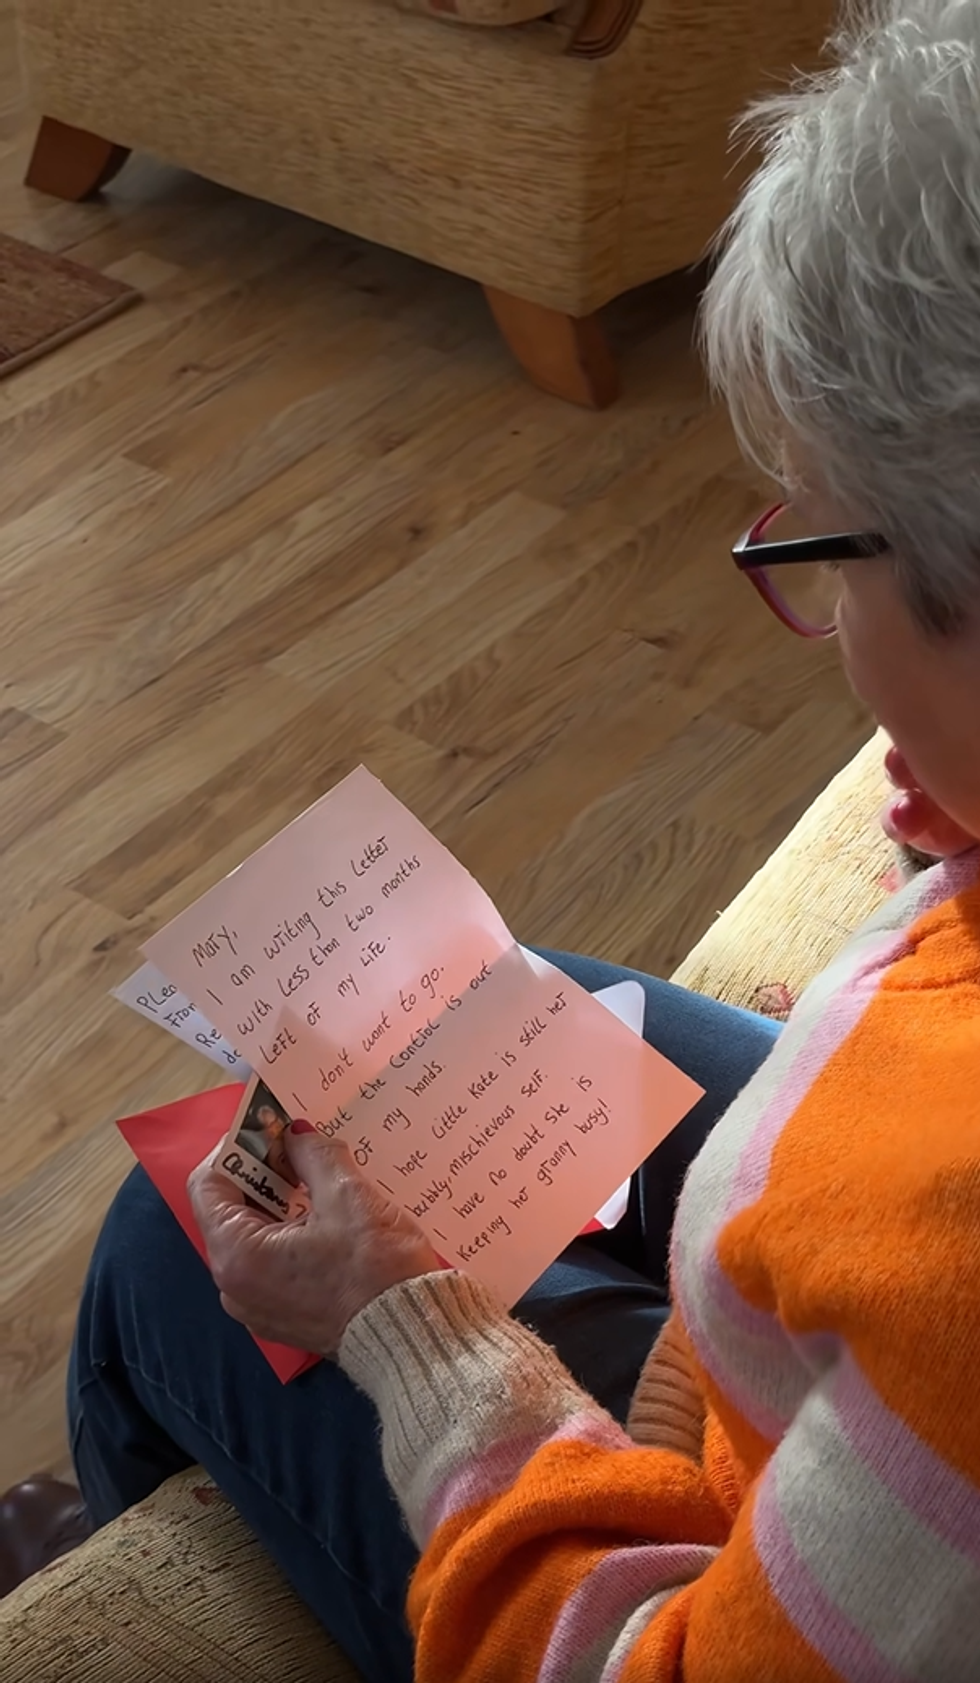 Mary,
I am writing this Letter
with Less than two months
Left of my Life.
I don't want to go.
But the Control is out
Of my hands.
I hope Little Kate is still her
bubbly, mischievous self.
I have no doubt she is
Keeping her granny busy!
From